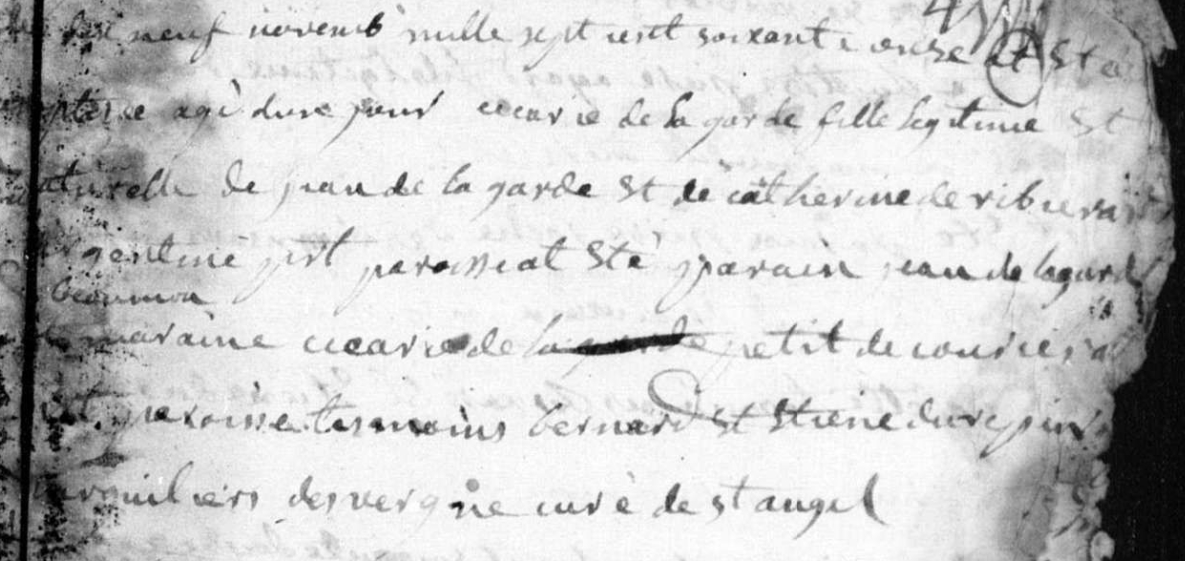 dix neuf novemb mille sept cent soixante onze at Sté
aptisee agé dune jour marie de la garde fille legitime Et
naturelle de jean de la garde Et de catherine de ribiera
gentme prst paroisse at Sté parain jean de lagarde
beaumon
maraine marie de la petit de couriera
paroisse tesmoins bernard Et Etiene durepin
desvergne curé de st angel